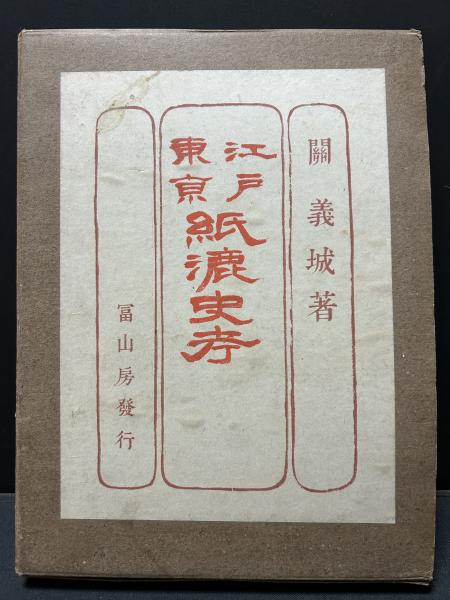 關義城著
江戸
東亰
紙漉史考
冨山房發行